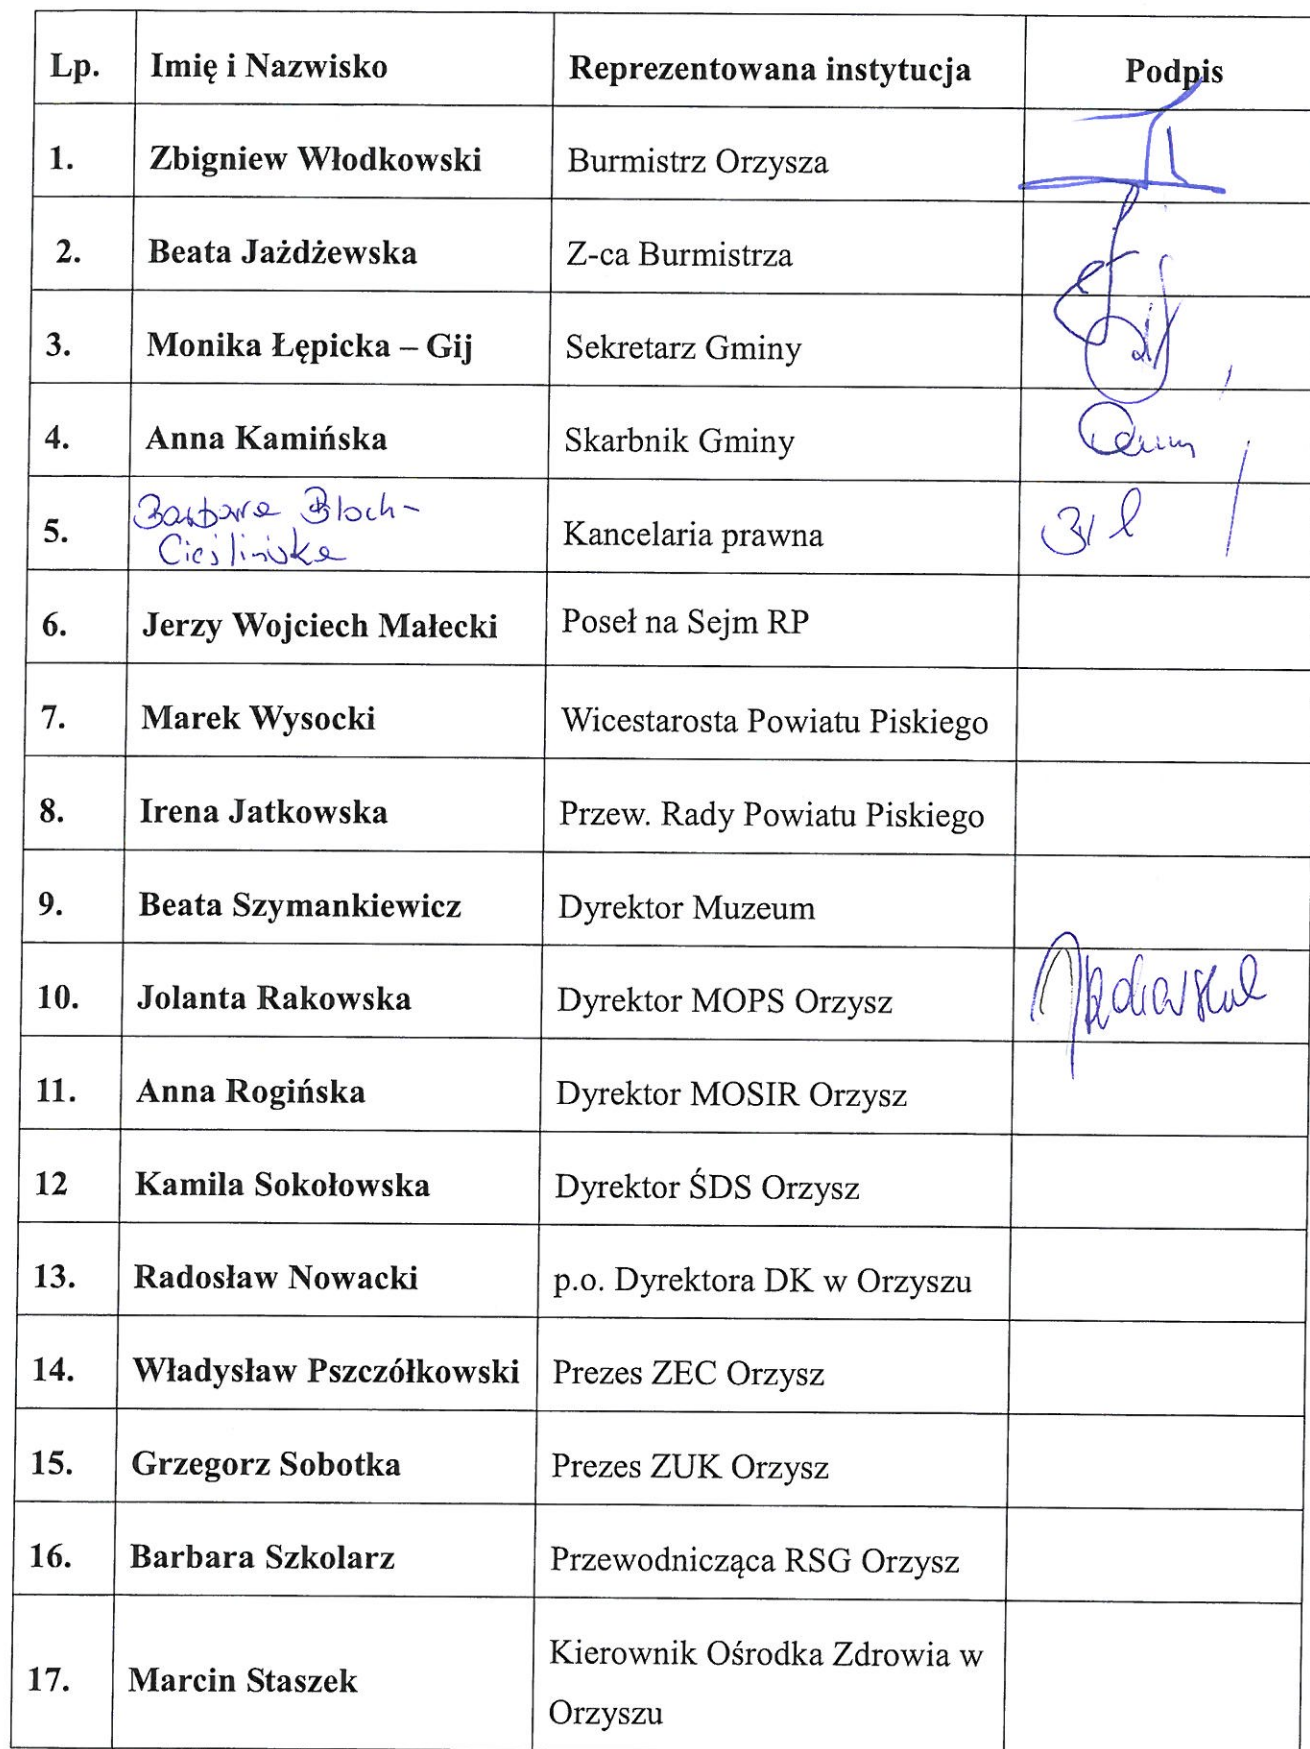 Lp. Imię i Nazwisko Reprezentowana instytucja Podpis
1. Zbigniew Włodkowski Burmistrz Orzysza
2. Beata Jażdżewska Z-ca Burmistrza
3. Monika Łępicka – Gij Sekretarz Gminy
4. Anna Kamińska Skarbnik Gminy
5. Barbara Bloch-
Cieślińska Kancelaria prawna
6. Jerzy Wojciech Małecki Poseł na Sejm RP
7. Marek Wysocki Wicestarosta Powiatu Piskiego
8. Irena Jatkowska Przew. Rady Powiatu Piskiego
9. Beata Szymankiewicz Dyrektor Muzeum
10. Jolanta Rakowska Dyrektor MOPS Orzysz
11. Anna Rogińska Dyrektor MOSIR Orzysz
12 Kamila Sokołowska Dyrektor ŚDS Orzysz
13. Radosław Nowacki p.o. Dyrektora DK w Orzyszu
14. Władysław Pszczółkowski Prezes ZEC Orzysz
15. Grzegorz Sobotka Prezes ZUK Orzysz
16. Barbara Szkolarz Przewodnicząca RSG Orzysz
17. Marcin Staszek Kierownik Ośrodka Zdrowia w
Orzyszu